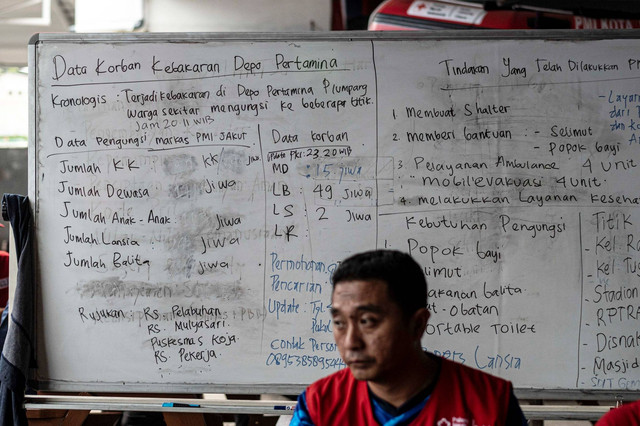 PMI KOTA
Data Korban Kebakaran Depo Pertamina
Kronologis : Terjadi kebakaran di Depo Pertamina Plumpang
warga sekitar mengungsi ke beberapa titik.
Jam 20 11 WIB
Data Pengungsi markas PMI JAKUT
Jumlah KK KK
Jumlah Dewasa Jiwa
Jumlah Anak-Anak. Jiwa
Jumlah Lansia : Jiwa
Jumlah Balita Jiwa
Rujukan : RS. Pelabuhan
RS. Mulyasari.
Puskesmas Koja.
RS. Pekerja.
Data korban
23.20 WIB
MD : 15 Jiwa
LB : 49 Jiwa
LS : 2 Jiwa
LR :
Permohonan
Pencarian
Update : Tgl
Contak Person
Tindakan Yang Telah Dilakukkan
1 Membuat Shalter
2. memberi bantuan : - Selimut
- Popok bayi
3. Pelayanan Ambulance 4 Unit
mobil evakuasi 4 unit.
4. melakukkan Layanan
- Layan
dari
Kebutuhan Pengungsi
Popok bayi
limut
akanan balita
at-obatan
ortable Toilet
Lansia
Titik
- Kel. Ra
- Kel Tug
- Stadion
- RPTRA
- Disnak
- Masjid